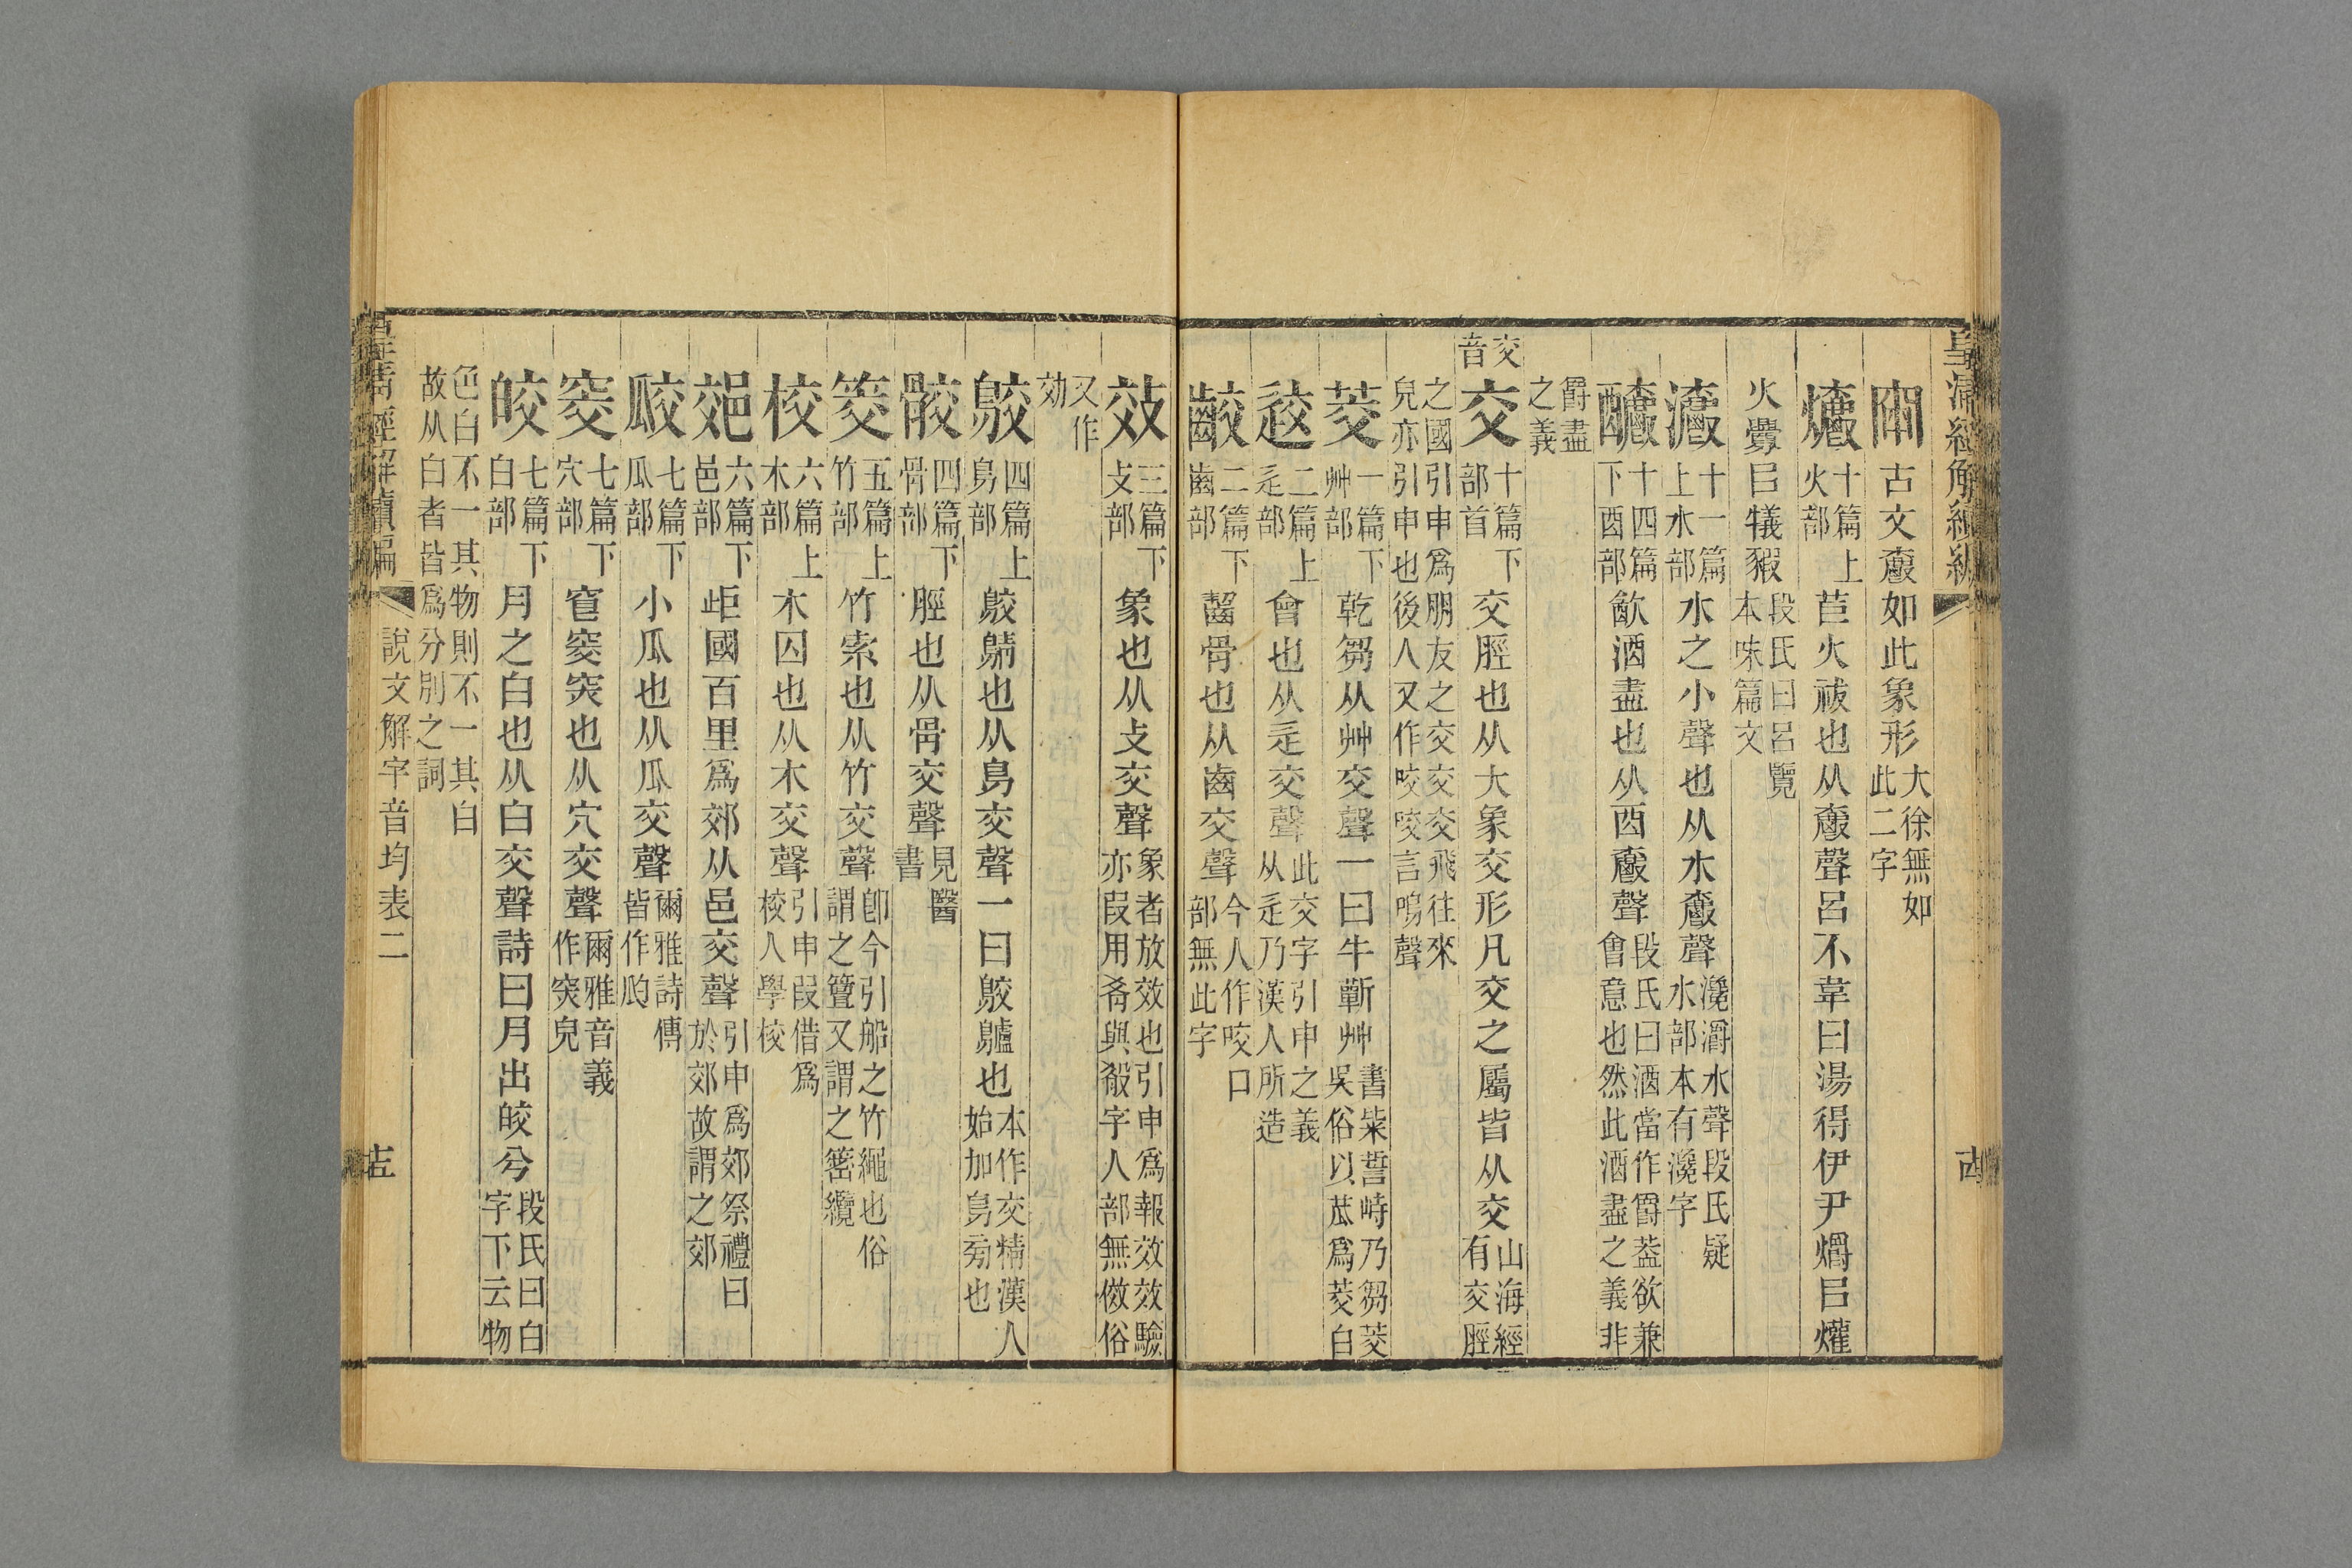 皇清經解續編
古文爵如此象形大徐無如
此二字
十篇上
火部
苣火祓也从爵聲呂不韋曰湯得伊尹爝㠯爟
火釁㠯犧豭段氏曰呂覽
本味篇文
十一篇
上水部
水之小聲也从水爵聲瀺灂水聲段氏疑
水部本有瀺字
十四篇
下酉部
歙酒盡也从酉爵聲段氏曰酒當作爵葢欲兼
會意也然此酒盡之義非
爵盡
之義
交
音
交十篇下
部首
交脛也从大象交形凡交之屬皆从交山海經
有交脛
之國引申爲朋友之交交交飛往來
皃亦引申也後人又作咬咬言鳴聲
茭一篇下
艸部
乾芻从艸交聲一曰牛蘄艸書粊誓峙乃芻茭
吳俗以苽爲茭白
䢒二篇上
辵部
會也从辵交聲此交字引申之義
从辵乃漢人所造
齩二篇下
齒部
齧骨也从齒交聲今人作咬口
部無此字
效三篇下
攴部
象也从攴交聲象者放效也引申爲報效效驗
亦叚用爻與殽字人部無傚俗
又作
効
鵁四篇上
鳥部
鵁鶄也从鳥交聲一曰鵁鸕也本作交精漢人
始加鳥旁也
骹四篇下
骨部
脛也从骨交聲見醫
書
筊五篇上
竹部
竹索也从竹交聲卽今引船之竹繩也俗
謂之簟又謂之簺纜
校六篇上
木部
木囚也从木交聲引申叚借爲
校人學校
郊六篇下
邑部
歫國百里爲郊从邑交聲引申爲郊祭禮曰
於郊故謂之郊
㼎七篇下
瓜部
小瓜也从瓜交聲爾雅詩傳
皆作瓝
窔七篇下
穴部
窅窔突也从穴交聲爾雅音義
作突皃
皎七篇下
白部
月之白也从白交聲詩曰月出皎兮段氏曰白
字下云物
色白不一其物則不一其白
故从白者皆爲分別之詞
皇清經解續編
說文解字音均表二